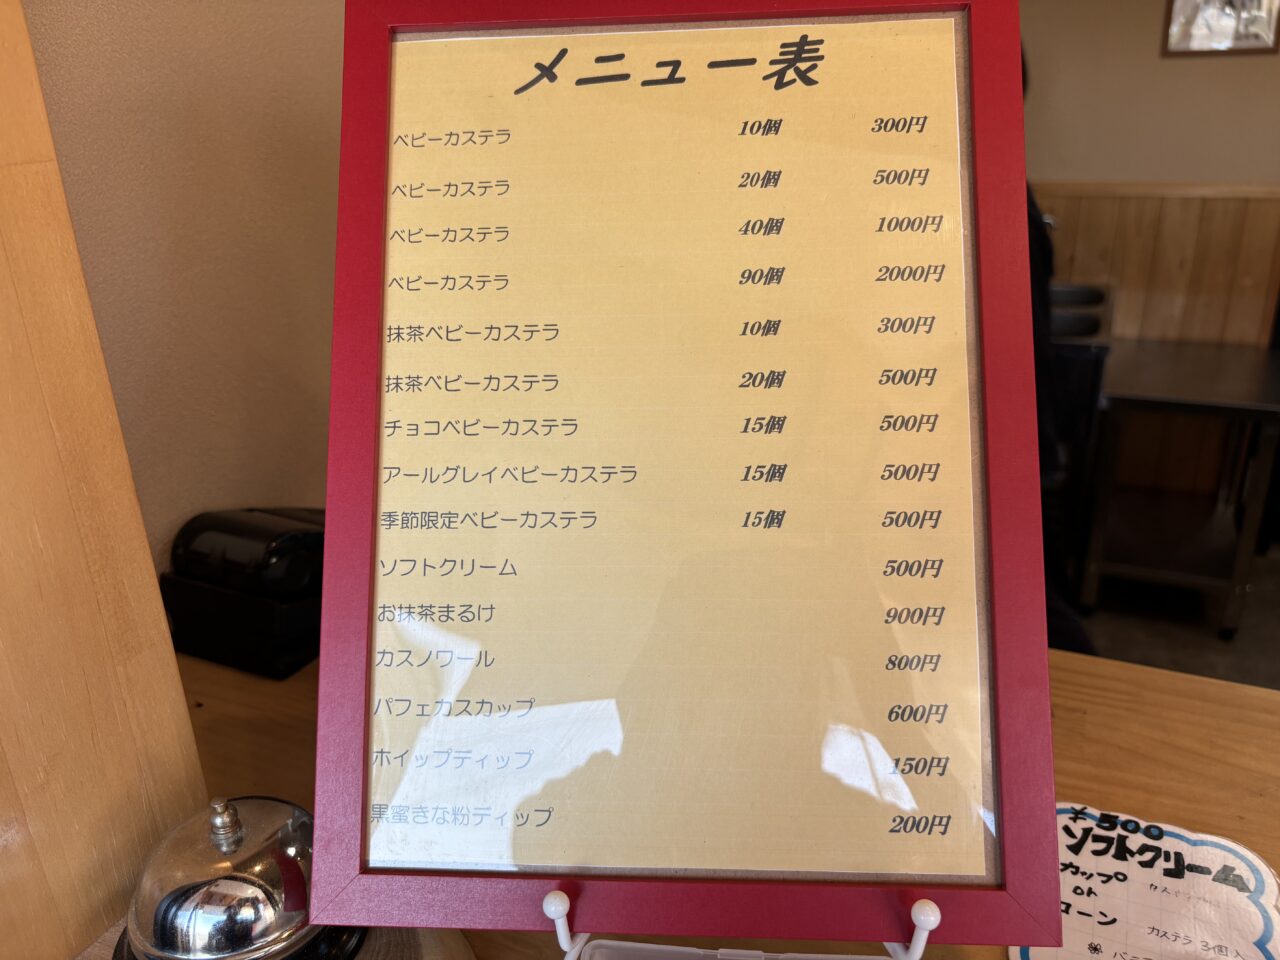 メニュー表
ベビーカステラ 10個 300円
ベビーカステラ 20個 500円
ベビーカステラ 40個 1000円
ベビーカステラ 90個 2000円
抹茶ベビーカステラ 10個 300円
抹茶ベビーカステラ 20個 500円
チョコベビーカステラ 15個 500円
アールグレイベビーカステラ 15個 500円
季節限定ベビーカステラ 15個 500円
ソフトクリーム 500円
お抹茶まるけ 900円
カスノワール 800円
パフェカスカップ 600円
ホイップディップ 150円
黒蜜きな粉ディップ 200円
¥500
ソフトクリーム
カップ
or
コーン
カステラ 3個入